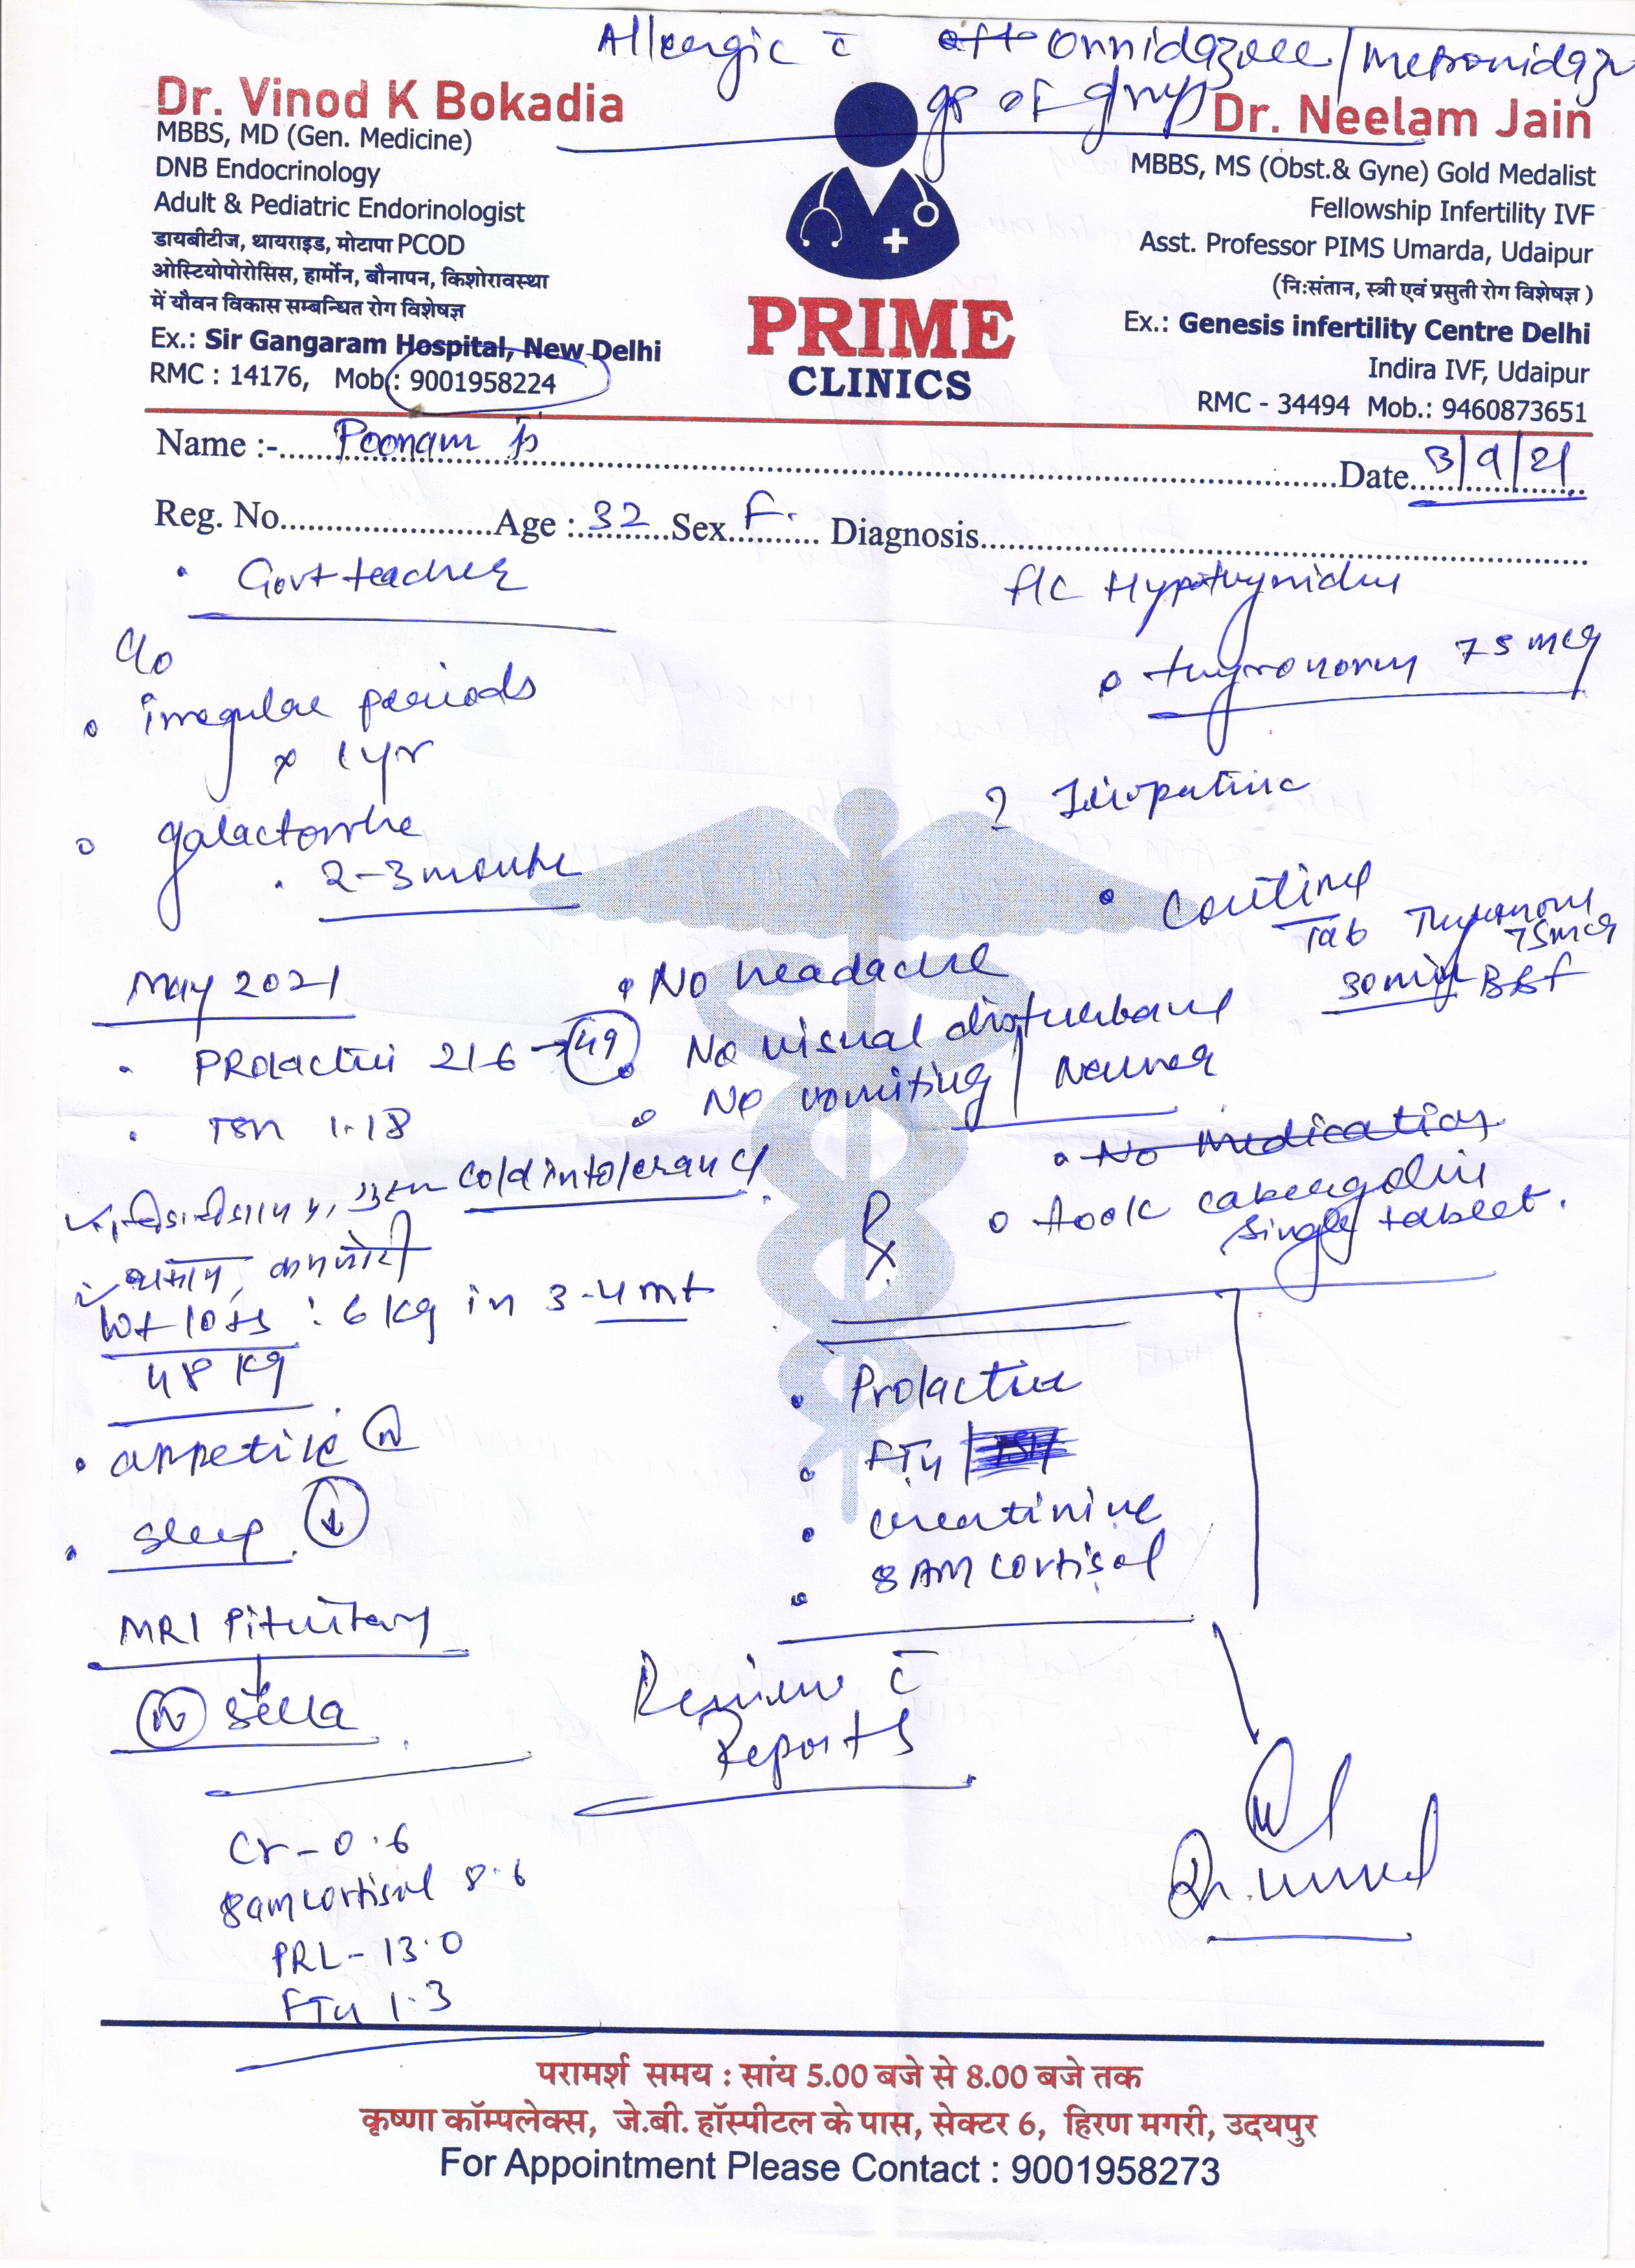 Allergic c̄ ornidazole/metronidazo
gp of drugs
Dr. Vinod K Bokadia
MBBS, MD (Gen. Medicine)
DNB Endocrinology
Adult & Pediatric Endorinologist
डायबीटीज, थायराइड, मोटापा PCOD
ओस्टियोपोरोसिस, हार्मोन, बौनापन, किशोरावस्था
में यौवन विकास सम्बन्धित रोग विशेषज्ञ
Ex.: Sir Gangaram Hospital, New Delhi
RMC : 14176, Mob.: 9001958224
PRIME
CLINICS
Dr. Neelam Jain
MBBS, MS (Obst.& Gyne) Gold Medalist
Fellowship Infertility IVF
Asst. Professor PIMS Umarda, Udaipur
(निःसंतान, स्त्री एवं प्रसुती रोग विशेषज्ञ )
Ex.: Genesis infertility Centre Delhi
Indira IVF, Udaipur
RMC - 34494 Mob.: 9460873651
Name :- Poonam Ji
Date 3/9/21
Reg. No. Age : 32 Sex F. Diagnosis
• Govt teacher
c/o
• irregular periods
x 1 yr
• galactorrhe
• 2-3 months
May 2021
• PRolactin 216 → 49
• TSH 1.18
cold intolerancy
थकान, कमजोरी
Wt loss : 6 kg in 3-4 mt
48 kg
• appetite N
• sleep ↓
MRI Pituitary
N sella
Cr - 0.6
8am cortisol 8.6
PRL - 13.0
FT4 1.3
• No headache
• No visual disturbance
• No vomiting / Nausea
Rx
• Prolactin
• FT4
• creatinine
• 8 AM cortisol
Review c̄
Reports
H/C Hypothyroidism
• thyronorm 75 mcg
? Idiopathic
• continue
Tab Thyronorm
75mcg
30 min BBF
• No Medication
• took cabergolin
single tablet.
Dr. Vinod
परामर्श समय : सांय 5.00 बजे से 8.00 बजे तक
कृष्णा कॉम्पलेक्स, जे.बी. हॉस्पीटल के पास, सेक्टर 6, हिरण मगरी, उदयपुर
For Appointment Please Contact : 9001958273